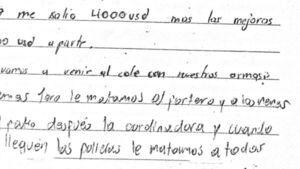 me salio 4000 usd mas las mejoras
00 usd aparte.
vamos a venir al cole con nuestras armas
le matamos al portero y a las nenas
patio después la cordinadora y cuando
lleguen los policias le matamos a todos